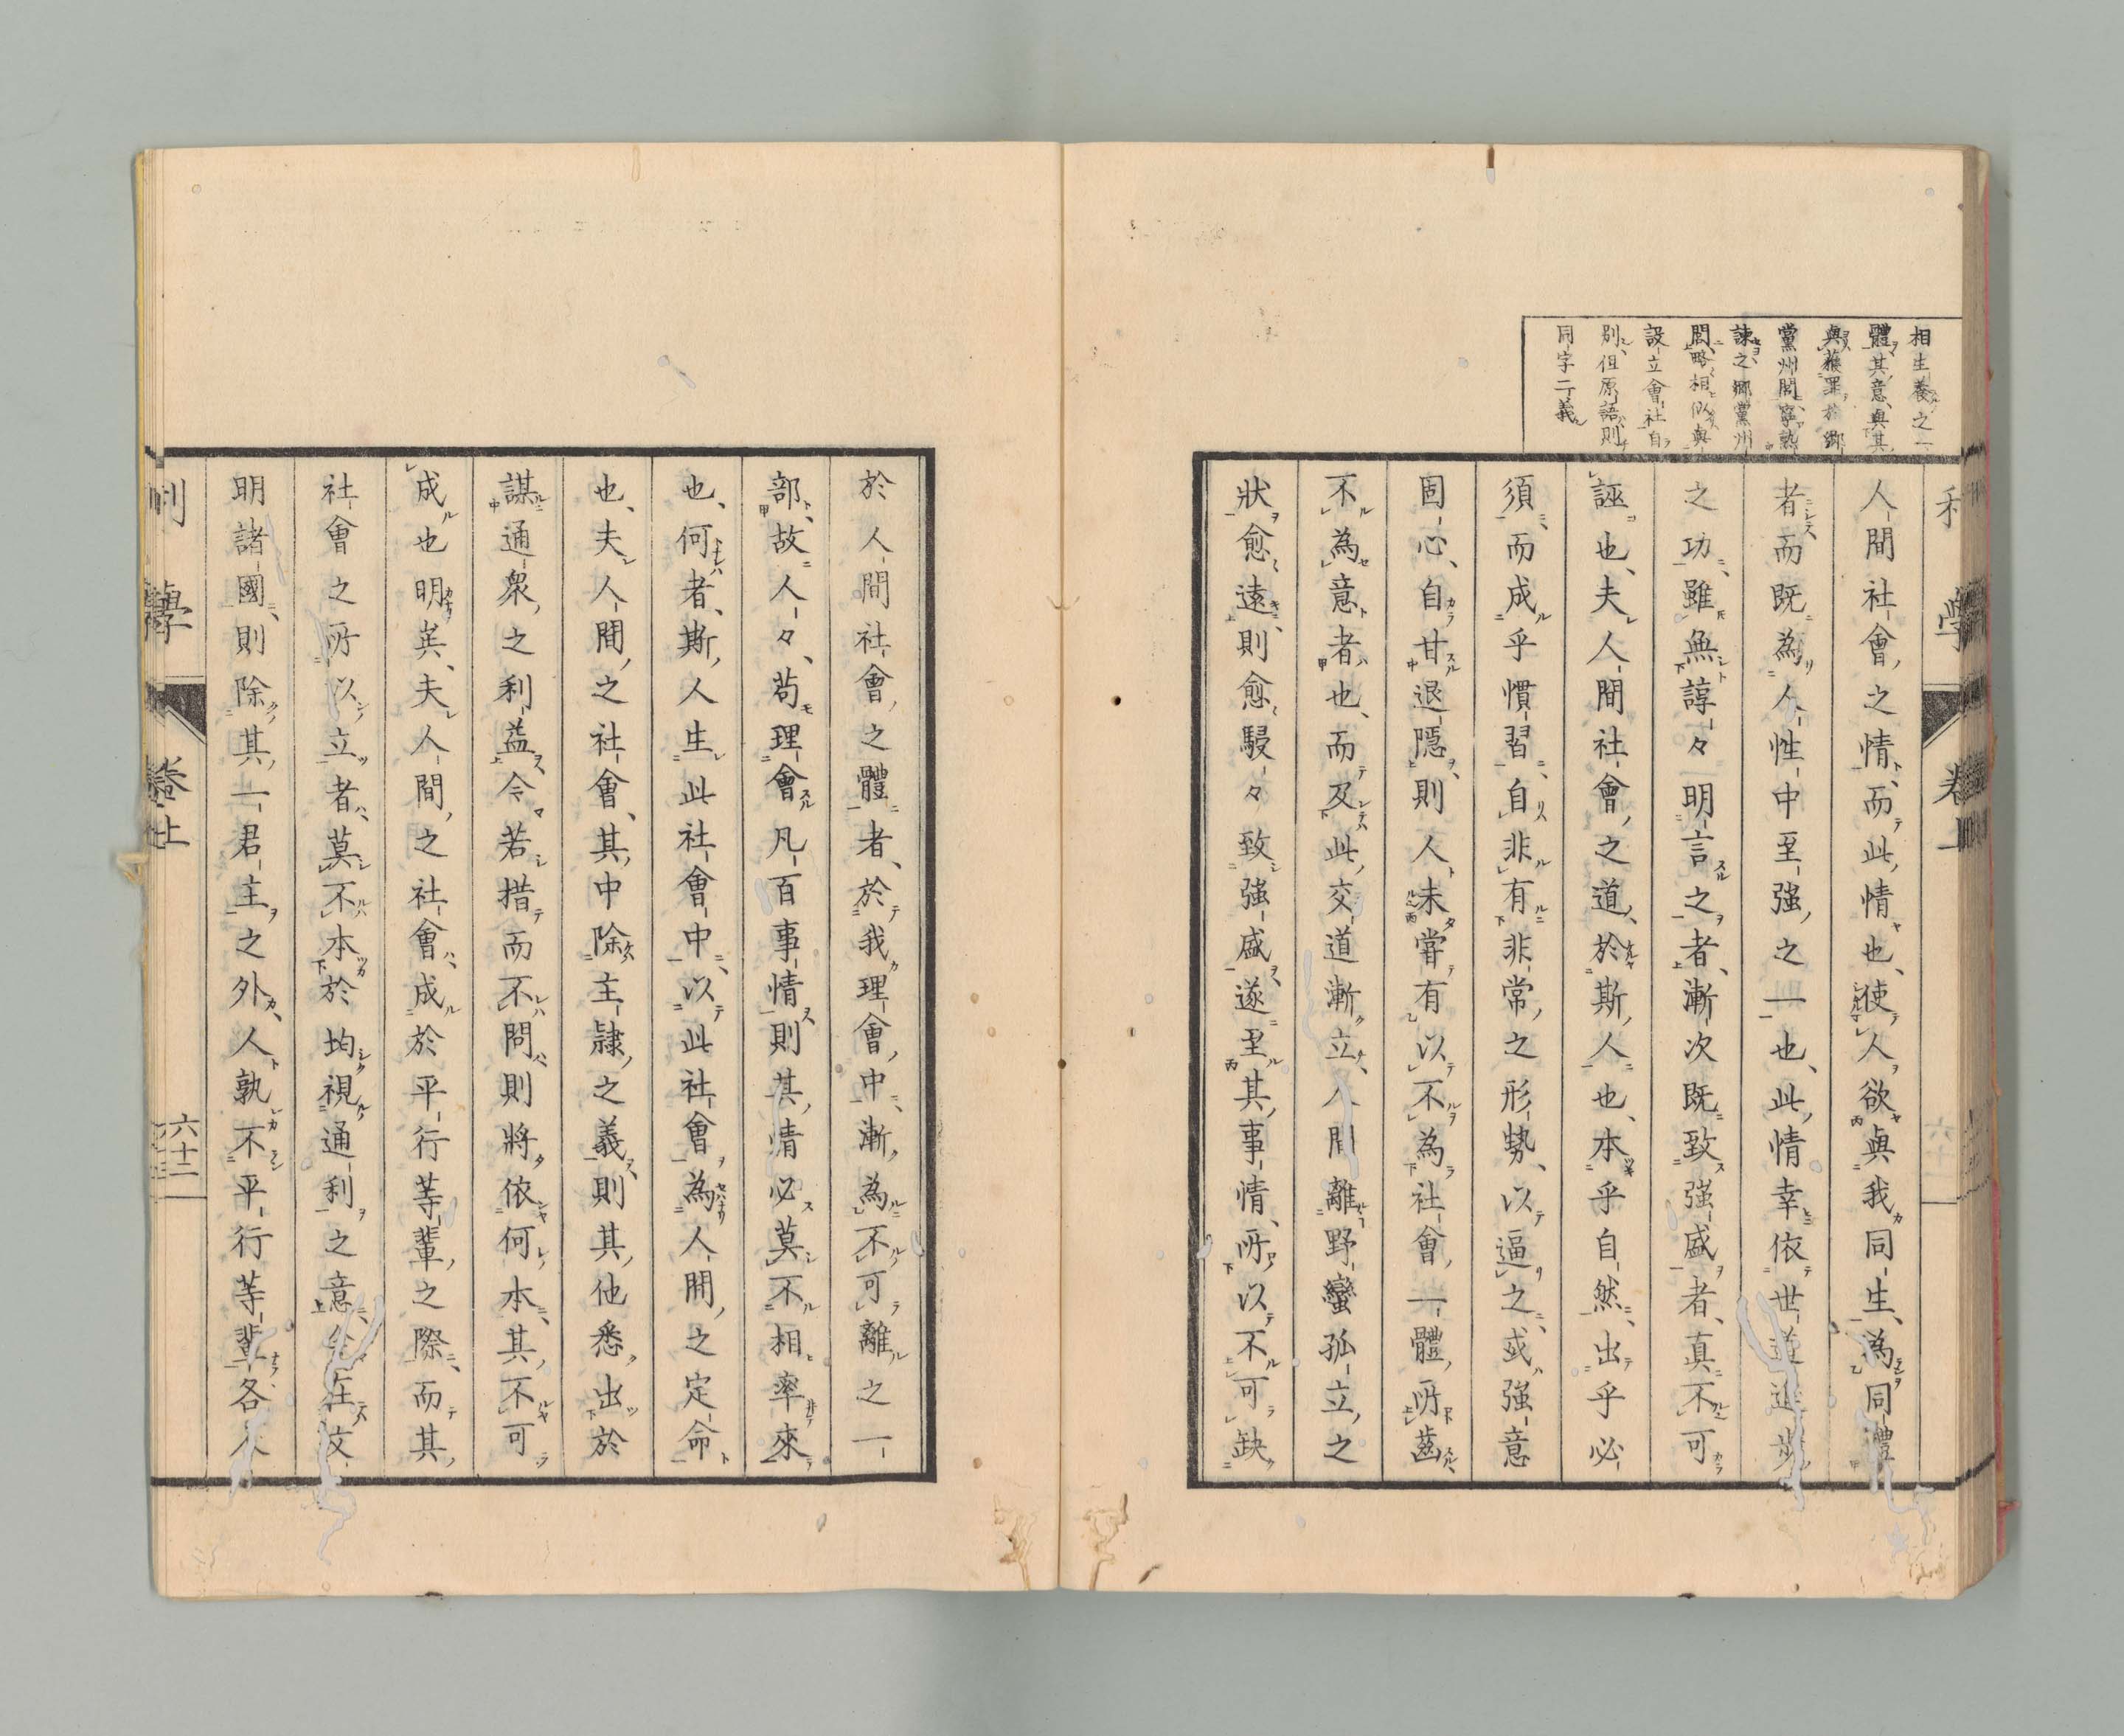 相生養之一
體其意與其
與獲罪於鄉
黨州閭寧熟
諫之鄉黨州
閭略相似與
設立會社自
別但原語則
同字二義
人間社會之情而此情也使人欲與我同生為同體
者而既為人性中至强之一也此情幸依世道進步
之功雖無諄々明言之者漸次既致强盛者真不可
誣也夫人間社會之道於斯人也本乎自然出乎必
須而成乎慣習自非有非常之形勢以逼之或强意
固心自甘退隱則人未甞有以不為社會一體所齒
不為意者也而及此交道漸立人間離野蠻孤立之
狀愈遠則愈駸々致强盛遂至其事情所以不可缺
於人間社會之體者於我理會中漸為不可離之一
部故人々苟理會凡百事情則其情必莫不相率來
也何者斯人生此社會中以此社會為人間之定命
也夫人間之社會其中除主隷之義則其他悉出於
謀通衆之利益令若措而不問則將依何本其不可
成也明矣夫人間之社會成於平行等輩之際而其
社會之所以立者莫不本於均視通利之意今在文
明諸國則除其一君主之外人孰不平行等輩各
利學 卷上 六十二